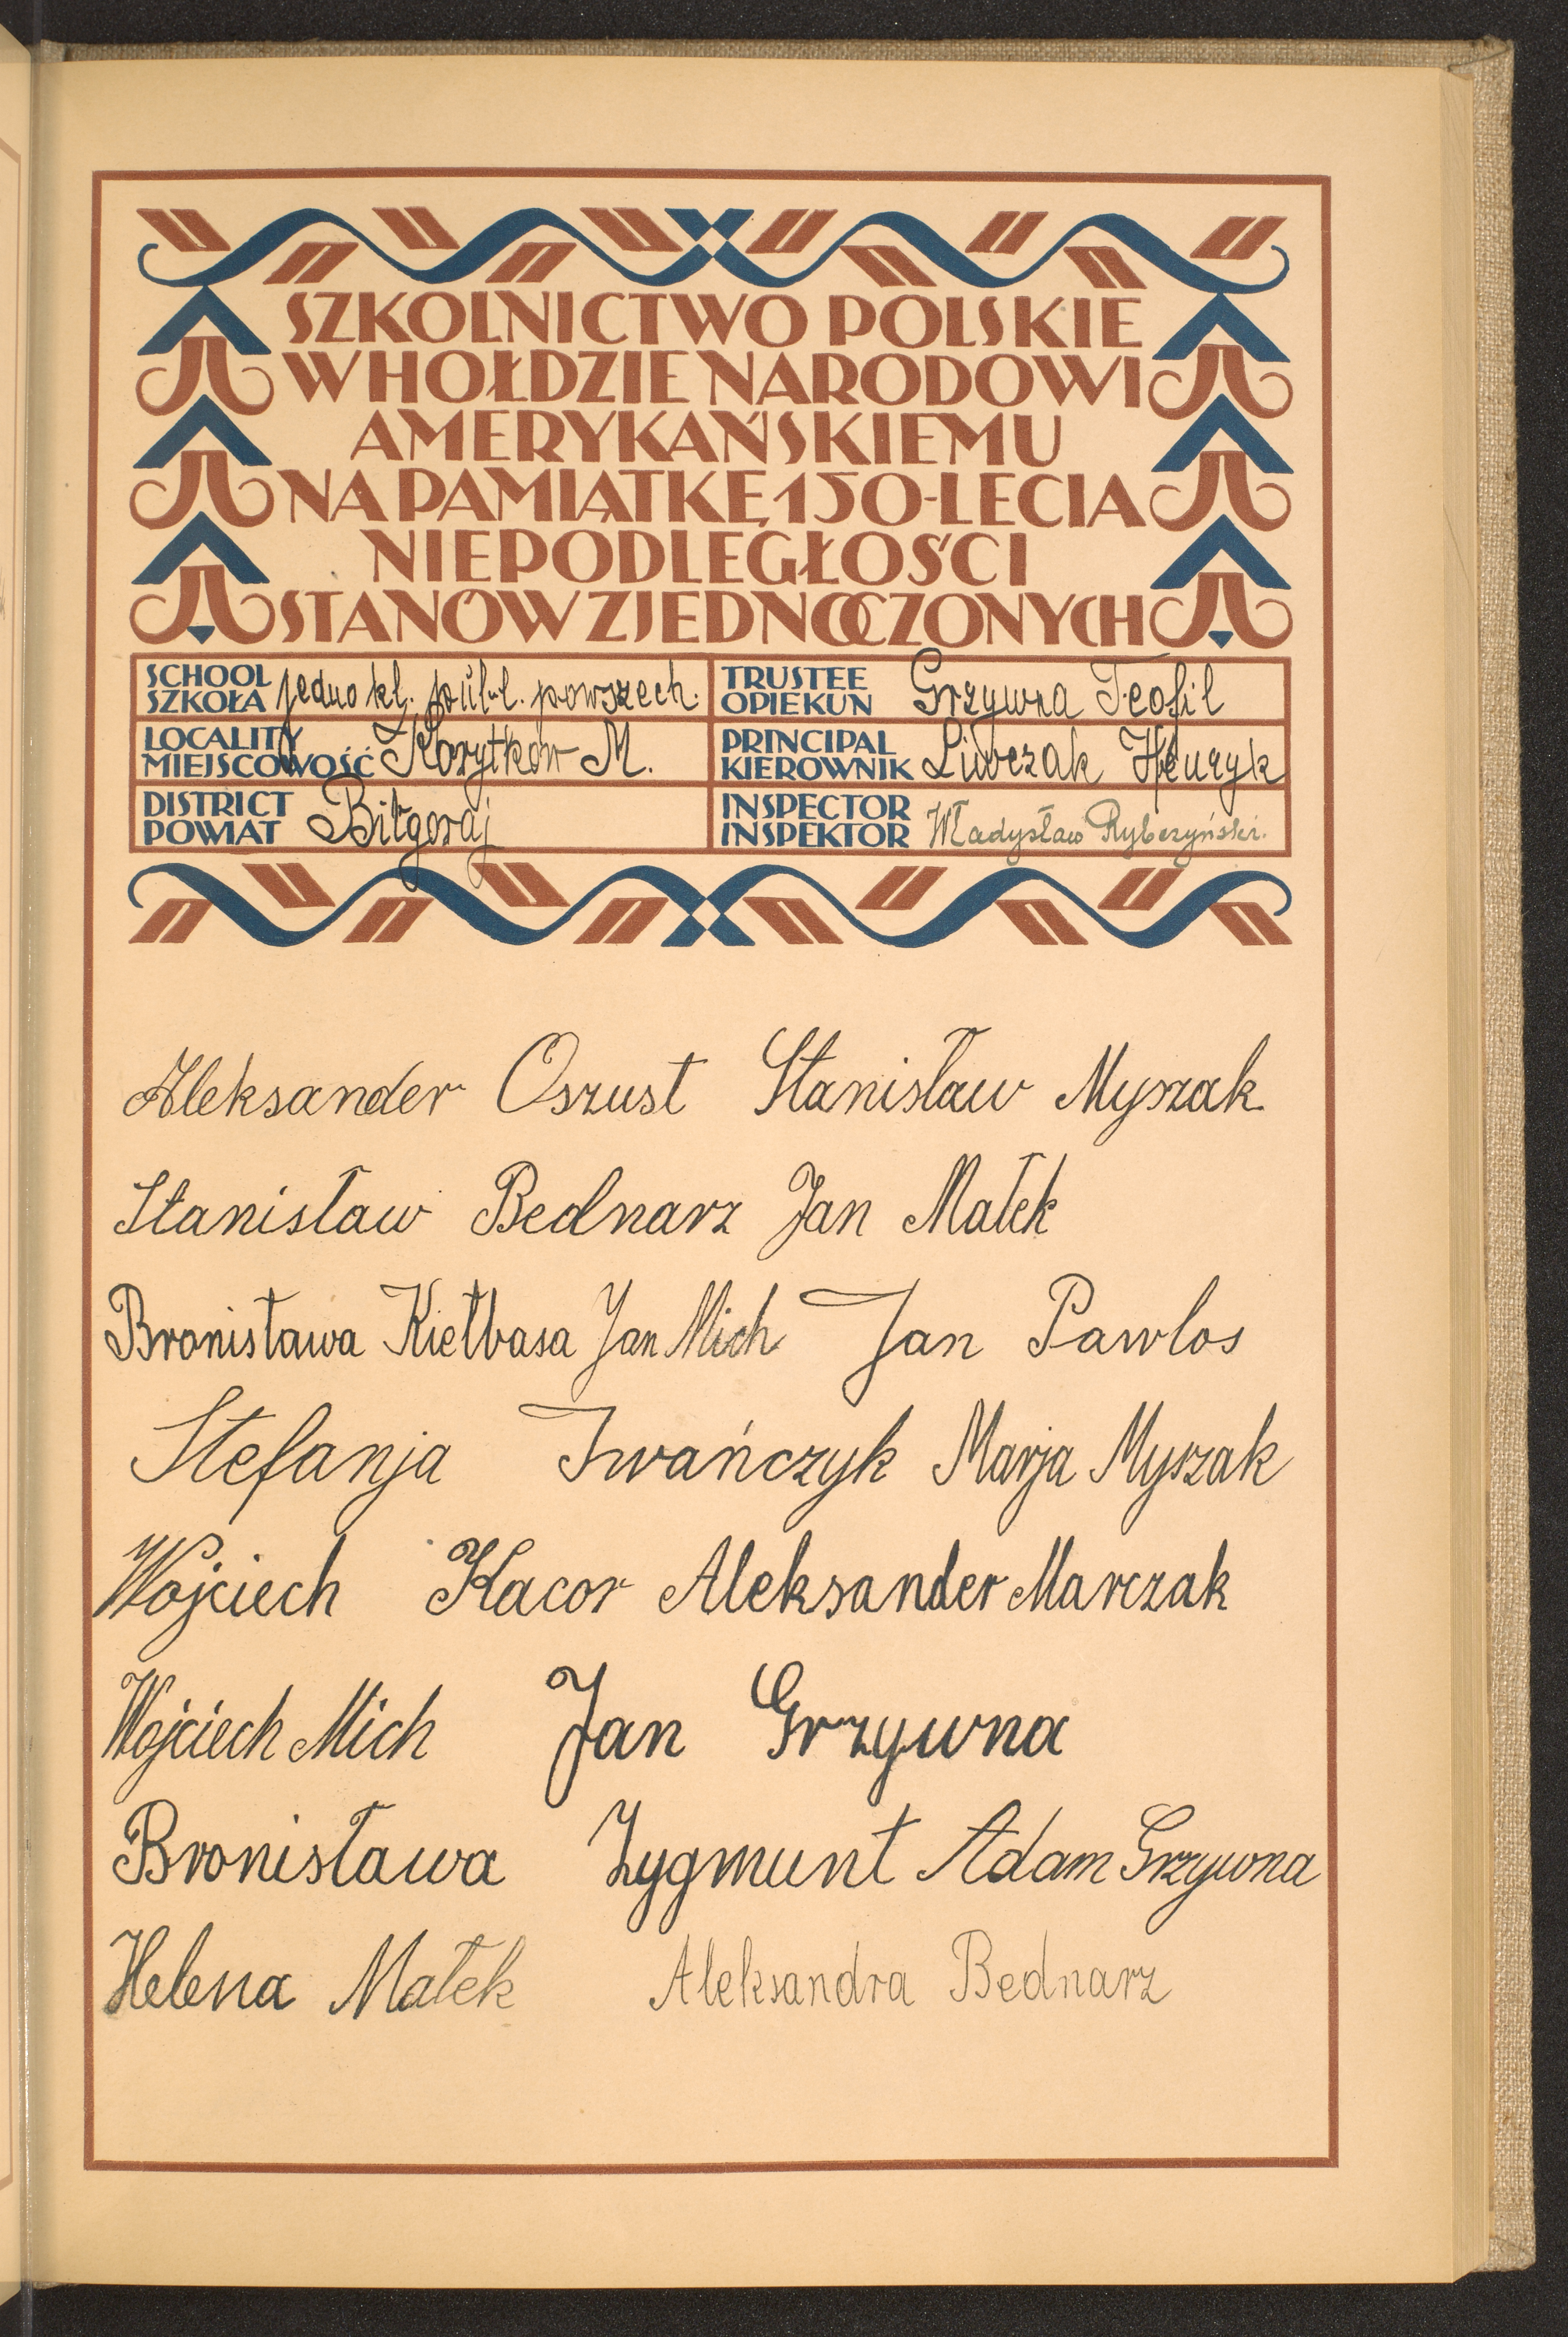 SZKOLNICTWO POLSKIE
W HOŁDZIE NARODOWI
AMERYKAŃSKIEMU
NA PAMIĄTKĘ 150-LECIA
NIEPODLEGŁOŚCI
STANÓW ZJEDNOCZONYCH
SCHOOL
SZKOŁA jedno kl. publ. powszech.
TRUSTEE
OPIEKUN Grzywna Teofil
LOCALITY
MIEJSCOWOŚĆ Korytków M.
PRINCIPAL
KIEROWNIK Liwczak Henryk
DISTRICT
POWIAT Biłgoraj
INSPECTOR
INSPEKTOR Władysław Rybczyński.
Aleksander Oszust Stanisław Myszak
Stanisław Bednarz Jan Małek
Bronisława Kiełbasa Jan Mich Jan Pawlos
Stefanja Iwańczyk Marja Myszak
Wojciech Kacor Aleksander Marczak
Wojciech Mich Jan Grzywna
Bronisława Zygmunt Adam Grzywna
Helena Małek Aleksandra Bednarz